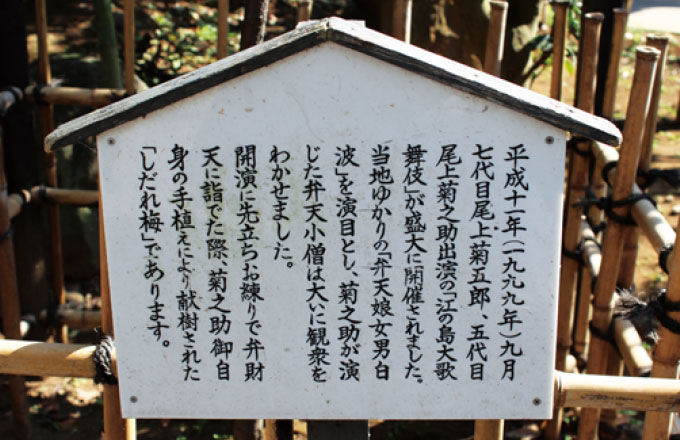 平成十一年(一九九九年)九月
七代目尾上菊五郎、五代目
尾上菊之助出演の「江の島大歌
舞伎」が盛大に開催されました。
当地ゆかりの「弁天娘女男白
波」を演目とし、菊之助が演
じた弁天小僧は大いに観衆を
わかせました。
開演に先立ちお練りで弁財
天に詣でた際、菊之助御自
身の手植えにより献樹された
「しだれ梅」であります。